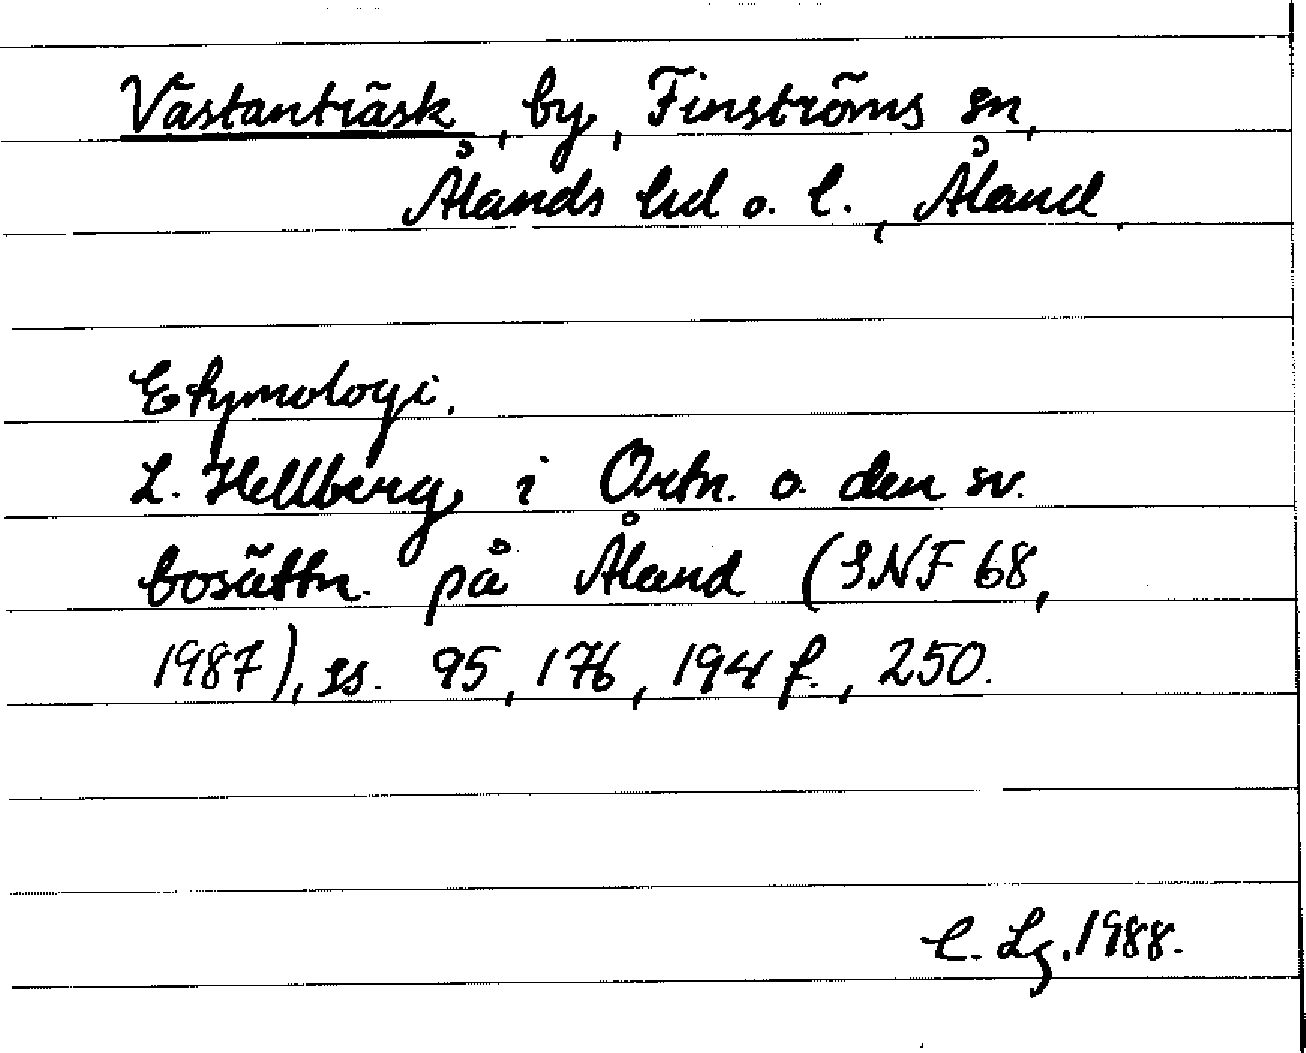 Västanträsk, by, Finströms sn,
Ålands hd o. l., Åland.
Etymologi.
L. Hellberg, i Ortn. o. den sv.
bosättn. på Åland (SNF 68,
1987), ss. 95, 176, 194 f., 250.
C. Lg. 1988.